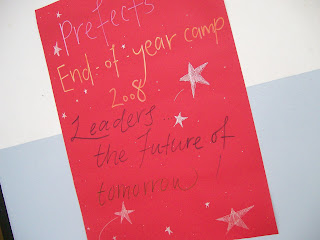 Prefects
End-of-year camp
2008
Leaders...
the future of
tomorrow!